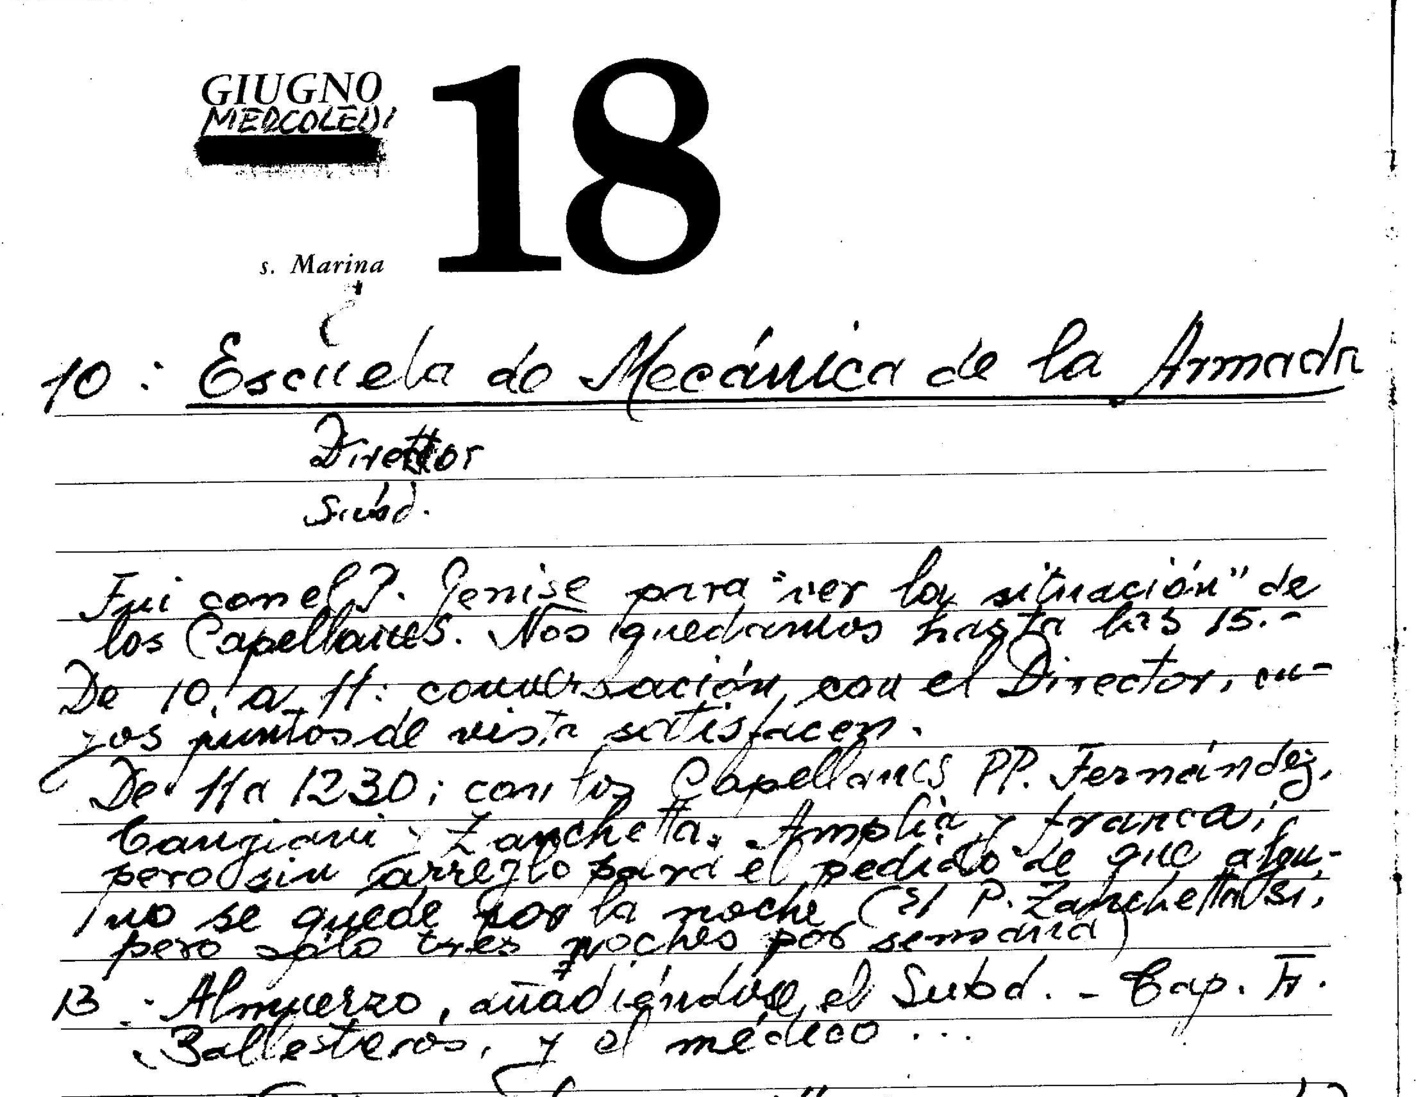 GIUGNO
MERCOLEDI
18
s. Marina
10: Escuela de Mecánica de la Armada
Director
Subd.
Fui con el P. Genise para "ver la situación" de
los Capellanes. Nos quedamos hasta las 15.-
De 10 a 11: conversación con el Director, cu-
yos puntos de vista satisfacen.
De 11 a 1230; con los Capellanes PP. Fernández,
Cangiani y Zanchetta. Amplia y franca;
pero sin arreglo para el pedido de que algu-
no se quede por la noche (El P. Zanchetta si,
pero sólo tres noches por semana)
13 - Almuerzo, añadiéndose el Subd. - Cap. F.
Ballesteros, y el médico...